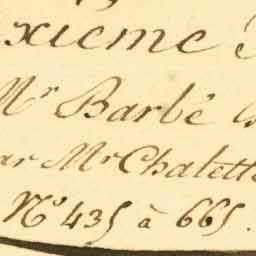 xième
Mr Barbé
ar Mr Chalette
No 435 à 665.